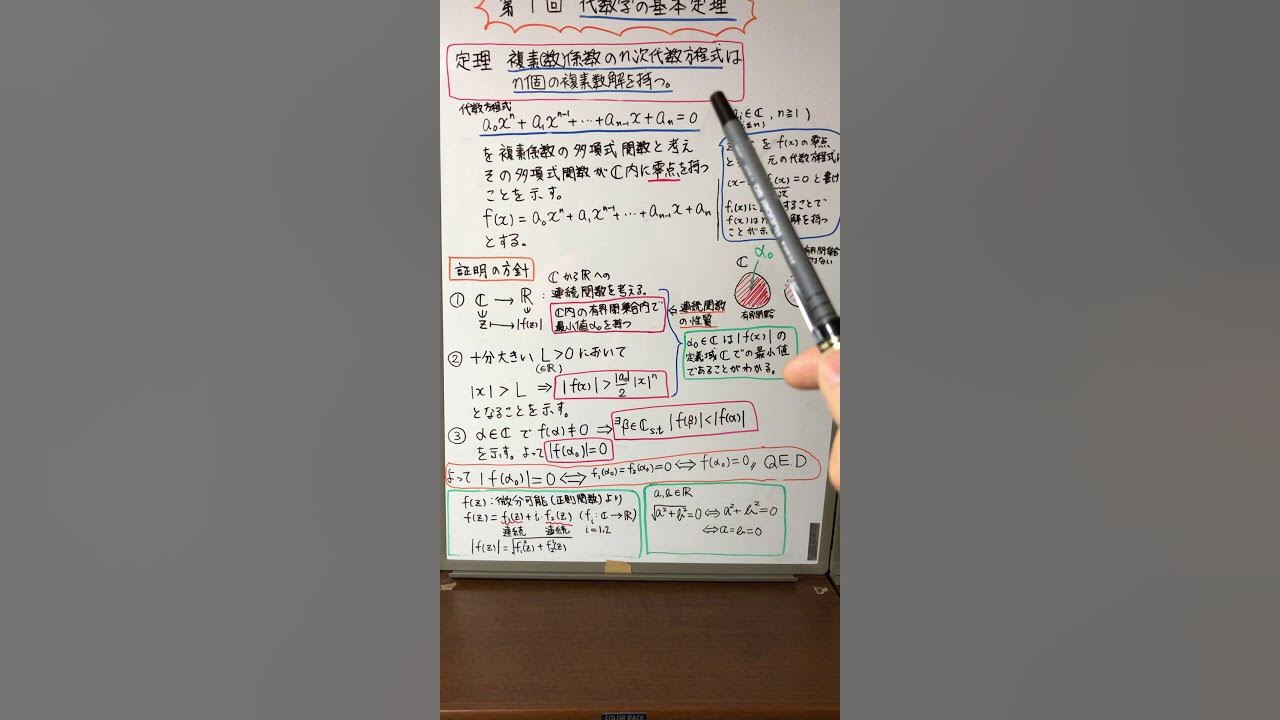 第1回 代数学の基本定理
定理 複素(数)係数のn次代数方程式は
n個の複素数解を持つ。
代数方程式
a₀xⁿ+a₁xⁿ⁻¹+…+aₙ₋₁x+aₙ=0
∈ℂ, n≧1)
を複素係数の多項式関数と考え
その多項式関数がℂ内に零点を持つ
ことを示す。
f(x)=a₀xⁿ+a₁xⁿ⁻¹+…+aₙ₋₁x+aₙ
とする。
を f(x)の零点
元の代数方程式は
=0 と書け
f₁(x)に
することで
f(x)は
解を持つ
ことが
証明の方針
① ℂ → ℝ : 連続関数を考える。
ℂからℝへの
z ↦ |f(z)|
ℂ内の有界閉集合内で
最小値α₀を持つ
⇐ 連続関数
の性質
ℂ
α₀
有界閉集合
有界閉集合
ない
α₀∈ℂは|f(x)|の
定義域ℂでの最小値
であることがわかる。
② 十分大きい L>0 において
(∈ℝ)
|x|>L ⇒ |f(x)|>|a₀|/2 |x|ⁿ
となることを示す。
③ α∈ℂ で f(α)≠0 ⇒ ∃β∈ℂ s.t |f(β)|<|f(α)|
を示す。よって |f(α₀)|=0
よって |f(α₀)|=0 ⇔ f₁(α₀)=f₂(α₀)=0 ⇔ f(α₀)=0,, Q.E.D
f(z):微分可能(正則関数)より
f(z)=f₁(z)+i·f₂(z) (fᵢ:ℂ→ℝ)
連続 連続 i=1,2
|f(z)|=√f₁²(z)+f₂²(z)
a,b∈ℝ
√a²+b²=0⇔a²+b²=0
⇔a=b=0
COLOR RACK